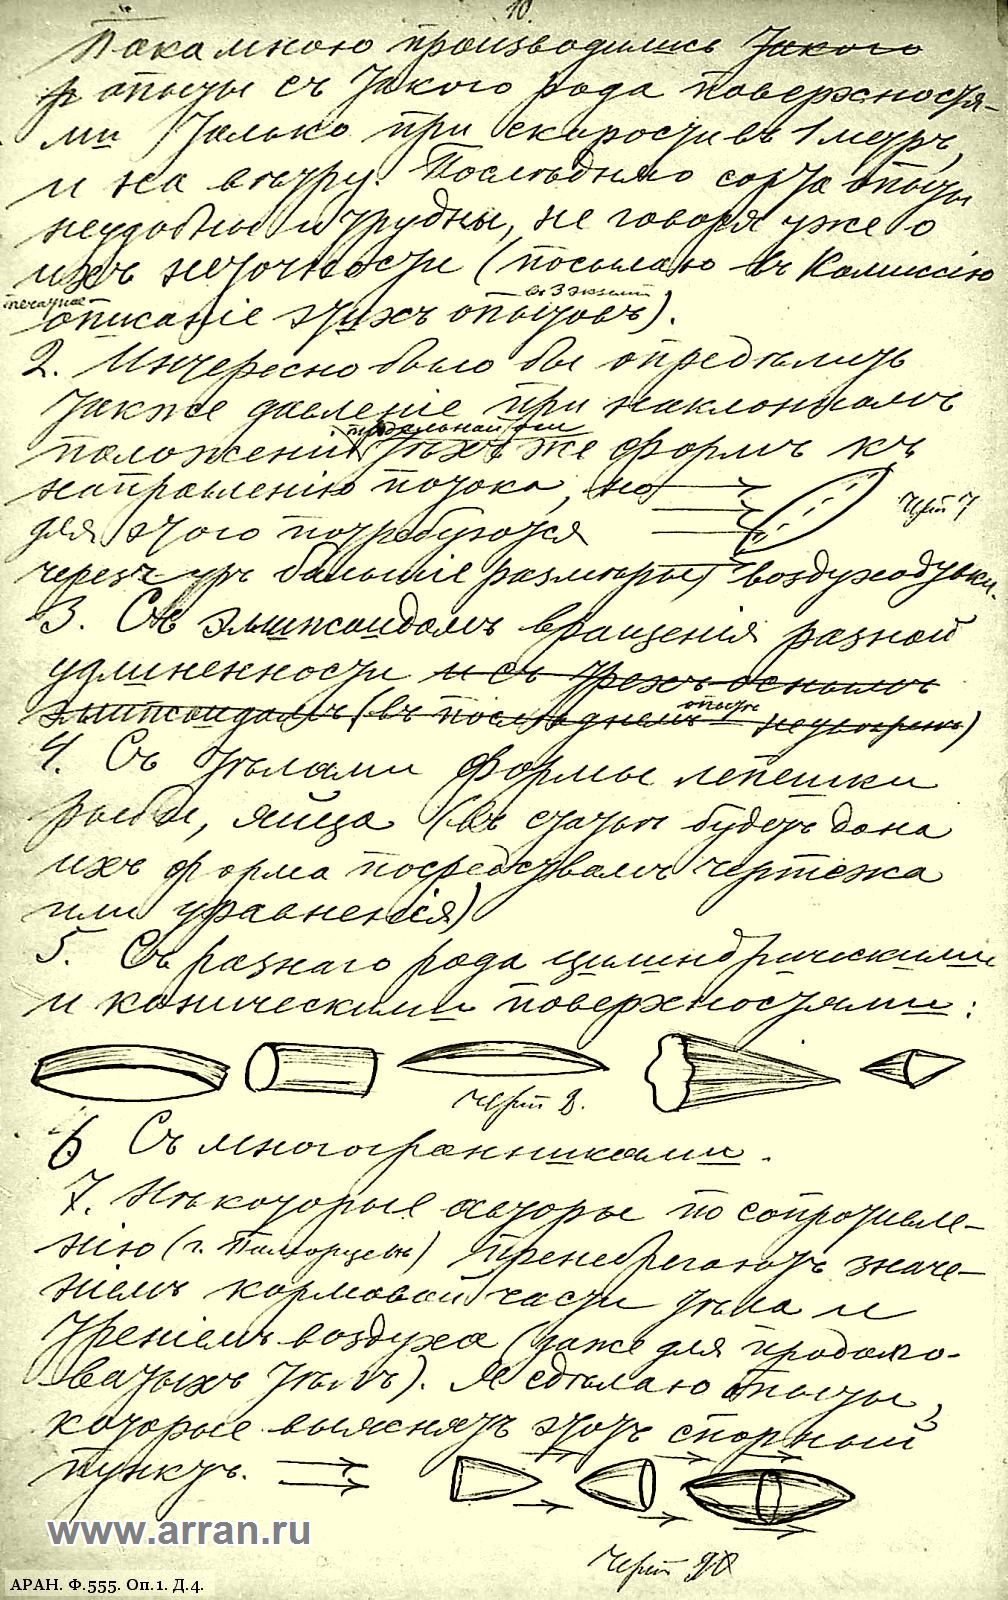 10.
Пока мною производились такого
опыты съ такого рода поверхностя-
ми только при скорости въ 1 метръ,
и на вѣтру. Послѣдняго сорта опыты
неудобны и трудны, не говоря уже о
ихъ неточности (посылаю въ Комиссію
печатное въ 3 экземп
описаніе этихъ опытовъ).
2. Интересно было бы опредѣлить
также давленіе при наклонномъ
продольной оси
положеніи тѣхъ же формъ къ
направленію потока, но
Черт 7
для этого потребуются
черезчуръ большіе размѣры воздуходувки.
3. Съ эллипсоидомъ вращенія разной
удлиненности и съ трехъ осными
эллипсоидами (въ послѣднемъ опытѣ)
4. Съ тѣлами формы лепешки
рыбы, яйца (въ статьѣ будетъ дана
ихъ форма посредствомъ чертежа
или уравненія)
5. Съ разнаго рода цилиндрическими
и коническими поверхностями:
Черт 8.
6 Съ многогранниками.
7. Нѣкоторые авторы по сопротивле-
нію (г. Поморцевъ) пренебрегаютъ значе-
ніемъ кормовой части тѣла и
треніемъ воздуха (даже для продолго-
ватыхъ тѣлъ). Я сдѣлаю опыты,
которые выяснятъ этотъ спорный
пунктъ.
Черт
www.arran.ru
АРАН. Ф.555. Оп.1. Д.4.